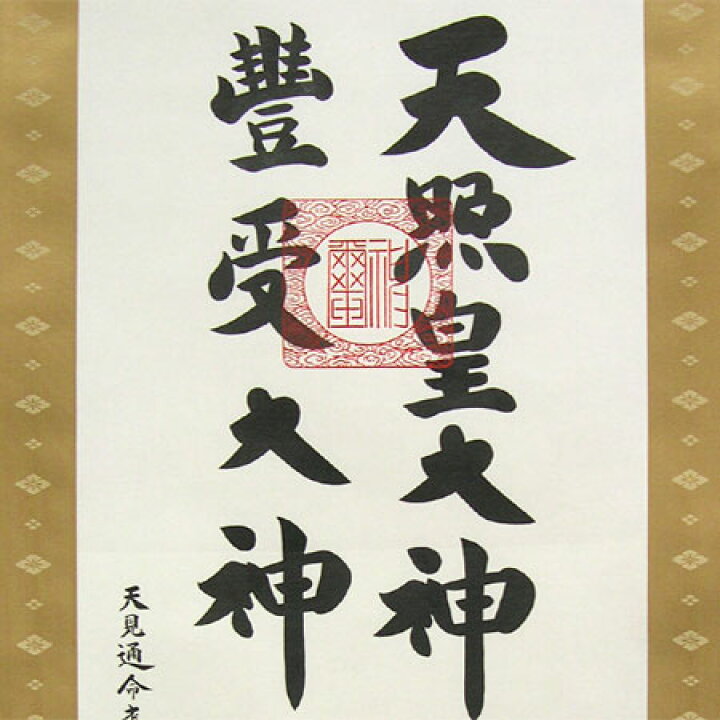 天照皇大神
豐受大神
神璽
天見通命